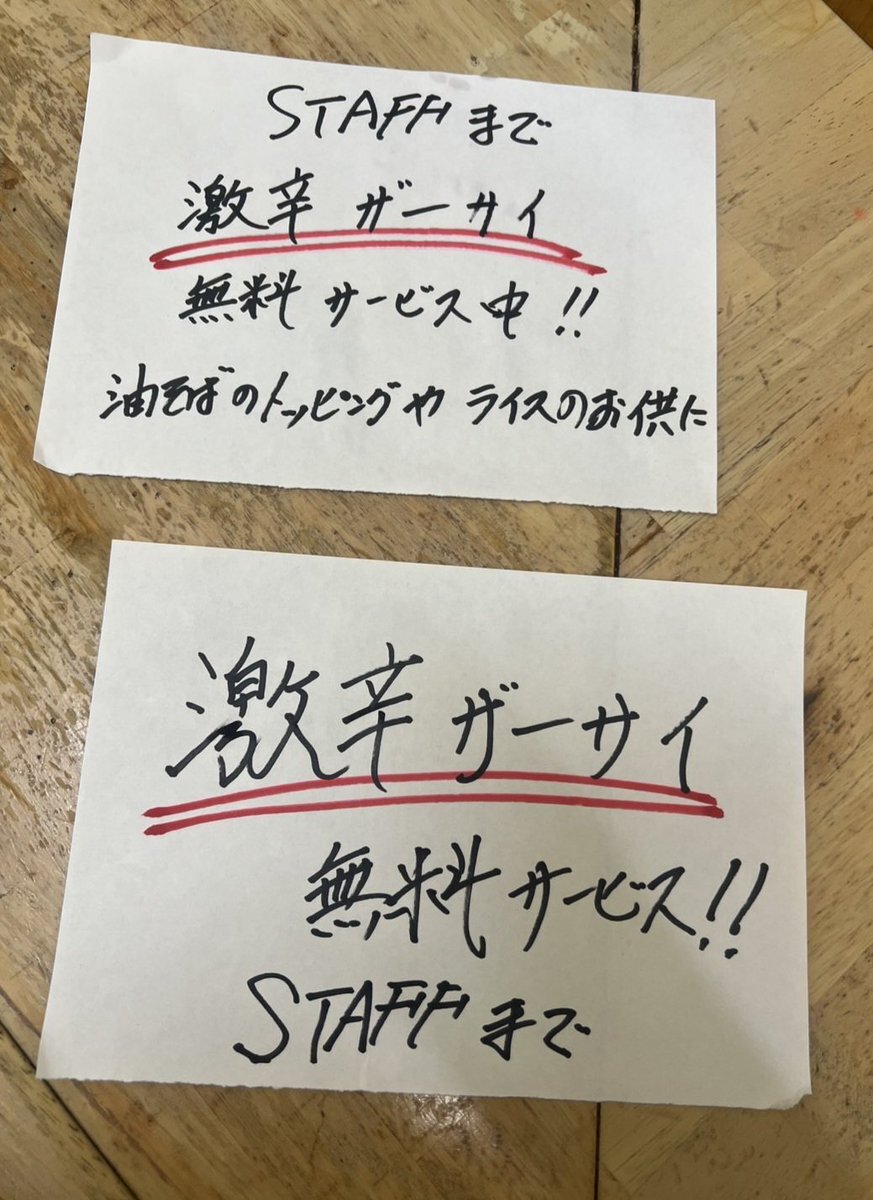 STAFFまで
激辛 ザーサイ
無料 サービス中!!
油そばのトッピングや ライスのお供に
激辛 ザーサイ
無料 サービス!!
STAFFまで